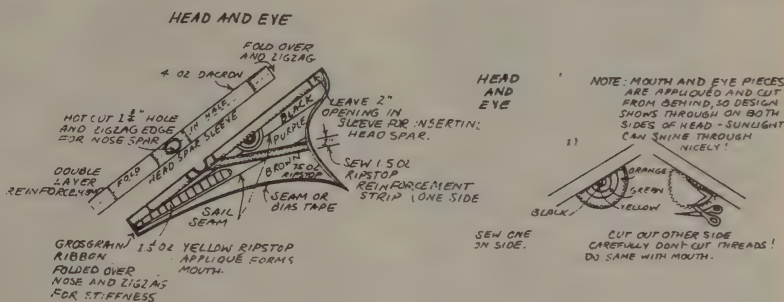 HEAD AND EYE
FOLD OVER
AND ZIGZAG
4 OZ DACRON
HOT CUT 1¼" HOLE
AND ZIGZAG EDGE
FOR NOSE SPAR
FOLD IN HALF
HEAD SPAR SLEEVE
BLACK
PURPLE
BROWN
.75 OZ
RIPSTOP
DOUBLE
LAYER
REINFORCEMENT
LEAVE 2"
OPENING IN
SLEEVE FOR INSERTING
HEAD SPAR.
SEW 1.5 OZ
RIPSTOP
REINFORCEMENT
STRIP (ONE SIDE
SAIL
SEAM
SEAM OR
BIAS TAPE
GROSGRAIN
RIBBON
FOLDED OVER
NOSE AND ZIGZAG
FOR STIFFNESS
1.5 OZ YELLOW RIPSTOP
APPLIQUÉ FORMS
MOUTH.
HEAD
AND
EYE
NOTE: MOUTH AND EYE PIECES
ARE APPLIQUED AND CUT
FROM BEHIND, SO DESIGN
SHOWS THROUGH ON BOTH
SIDES OF HEAD - SUNLIGHT
CAN SHINE THROUGH
NICELY!
ORANGE
GREEN
YELLOW
BLACK
SEW ONE
ON SIDE.
CUT OUT OTHER SIDE
CAREFULLY DON'T CUT THREADS!
DO SAME WITH MOUTH.